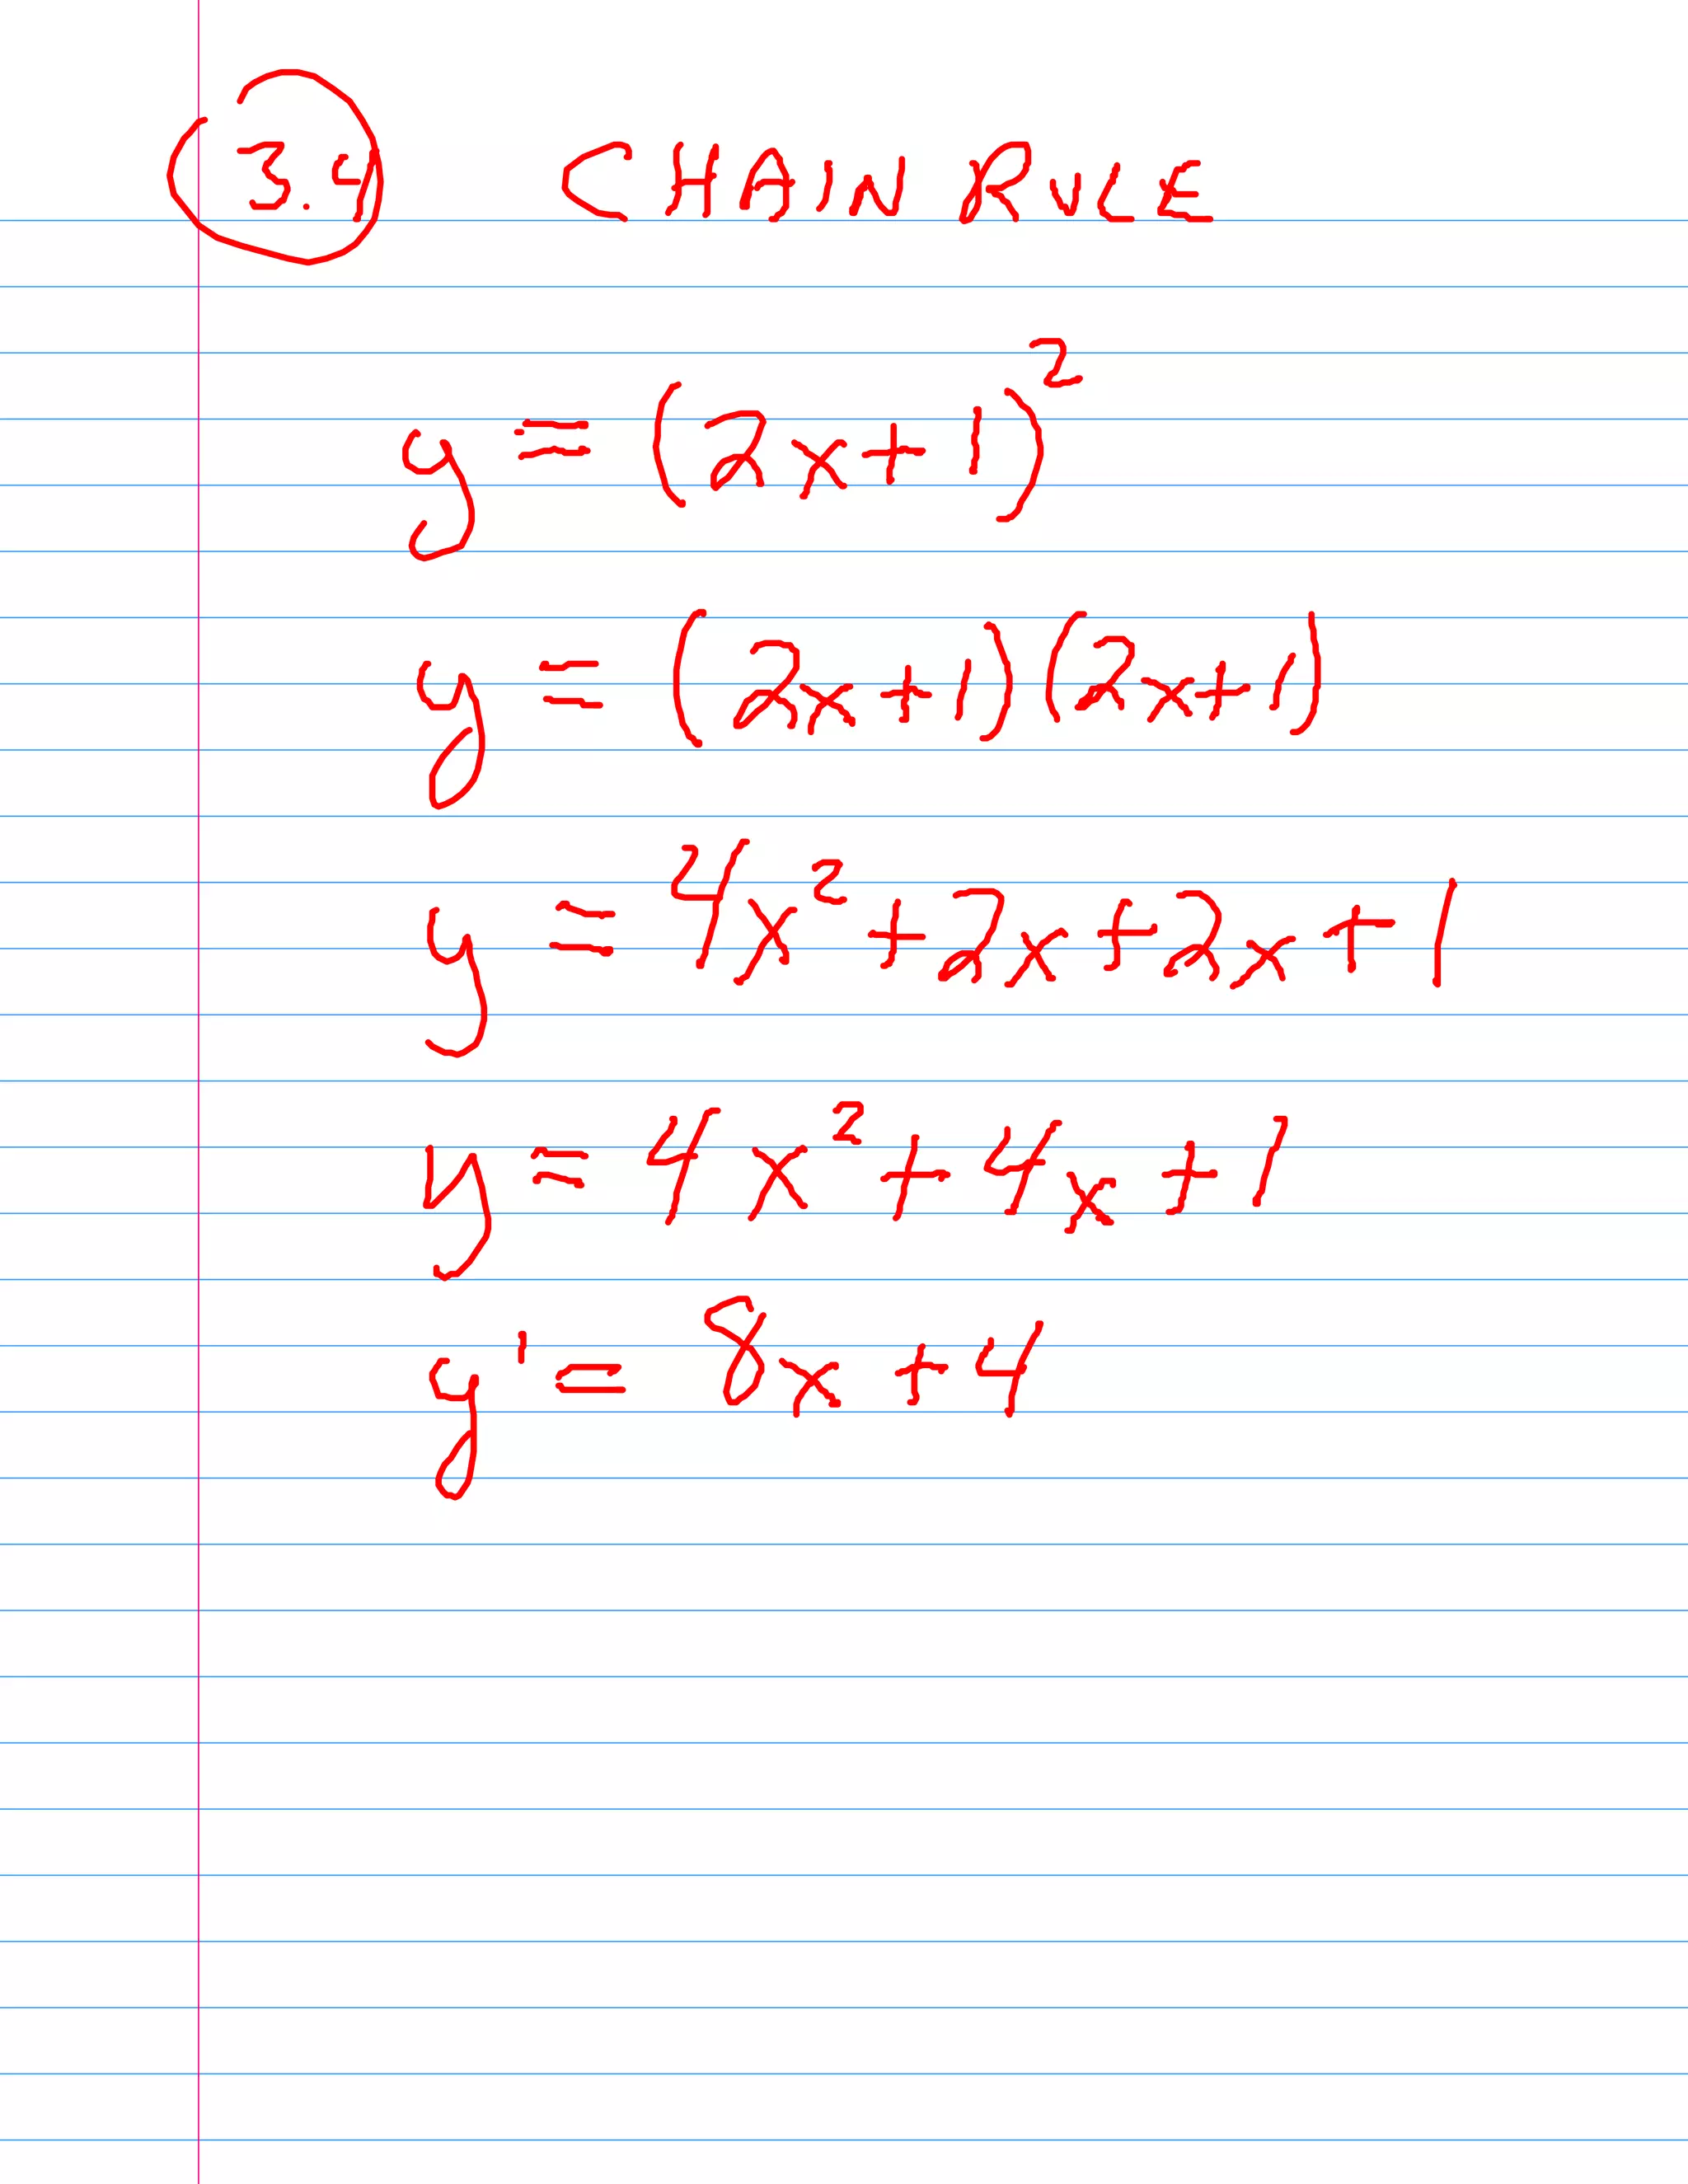 3.4 CHAIN RULE
y = (2x+1)²
y = (2x+1)(2x+1)
y = 4x²+2x+2x+1
y = 4x²+4x+1
y' = 8x+4